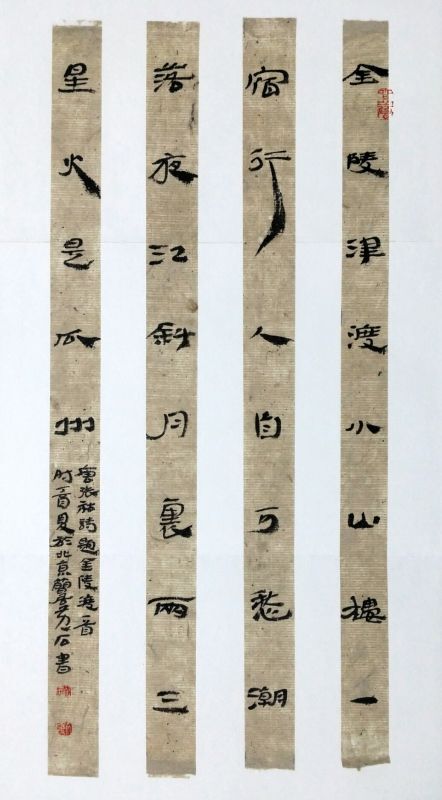 金陵津渡小山樓一
宿行人自可愁潮
落夜江斜月裏兩三
星火是瓜州
唐張祜詩題金陵渡
於北京 石書